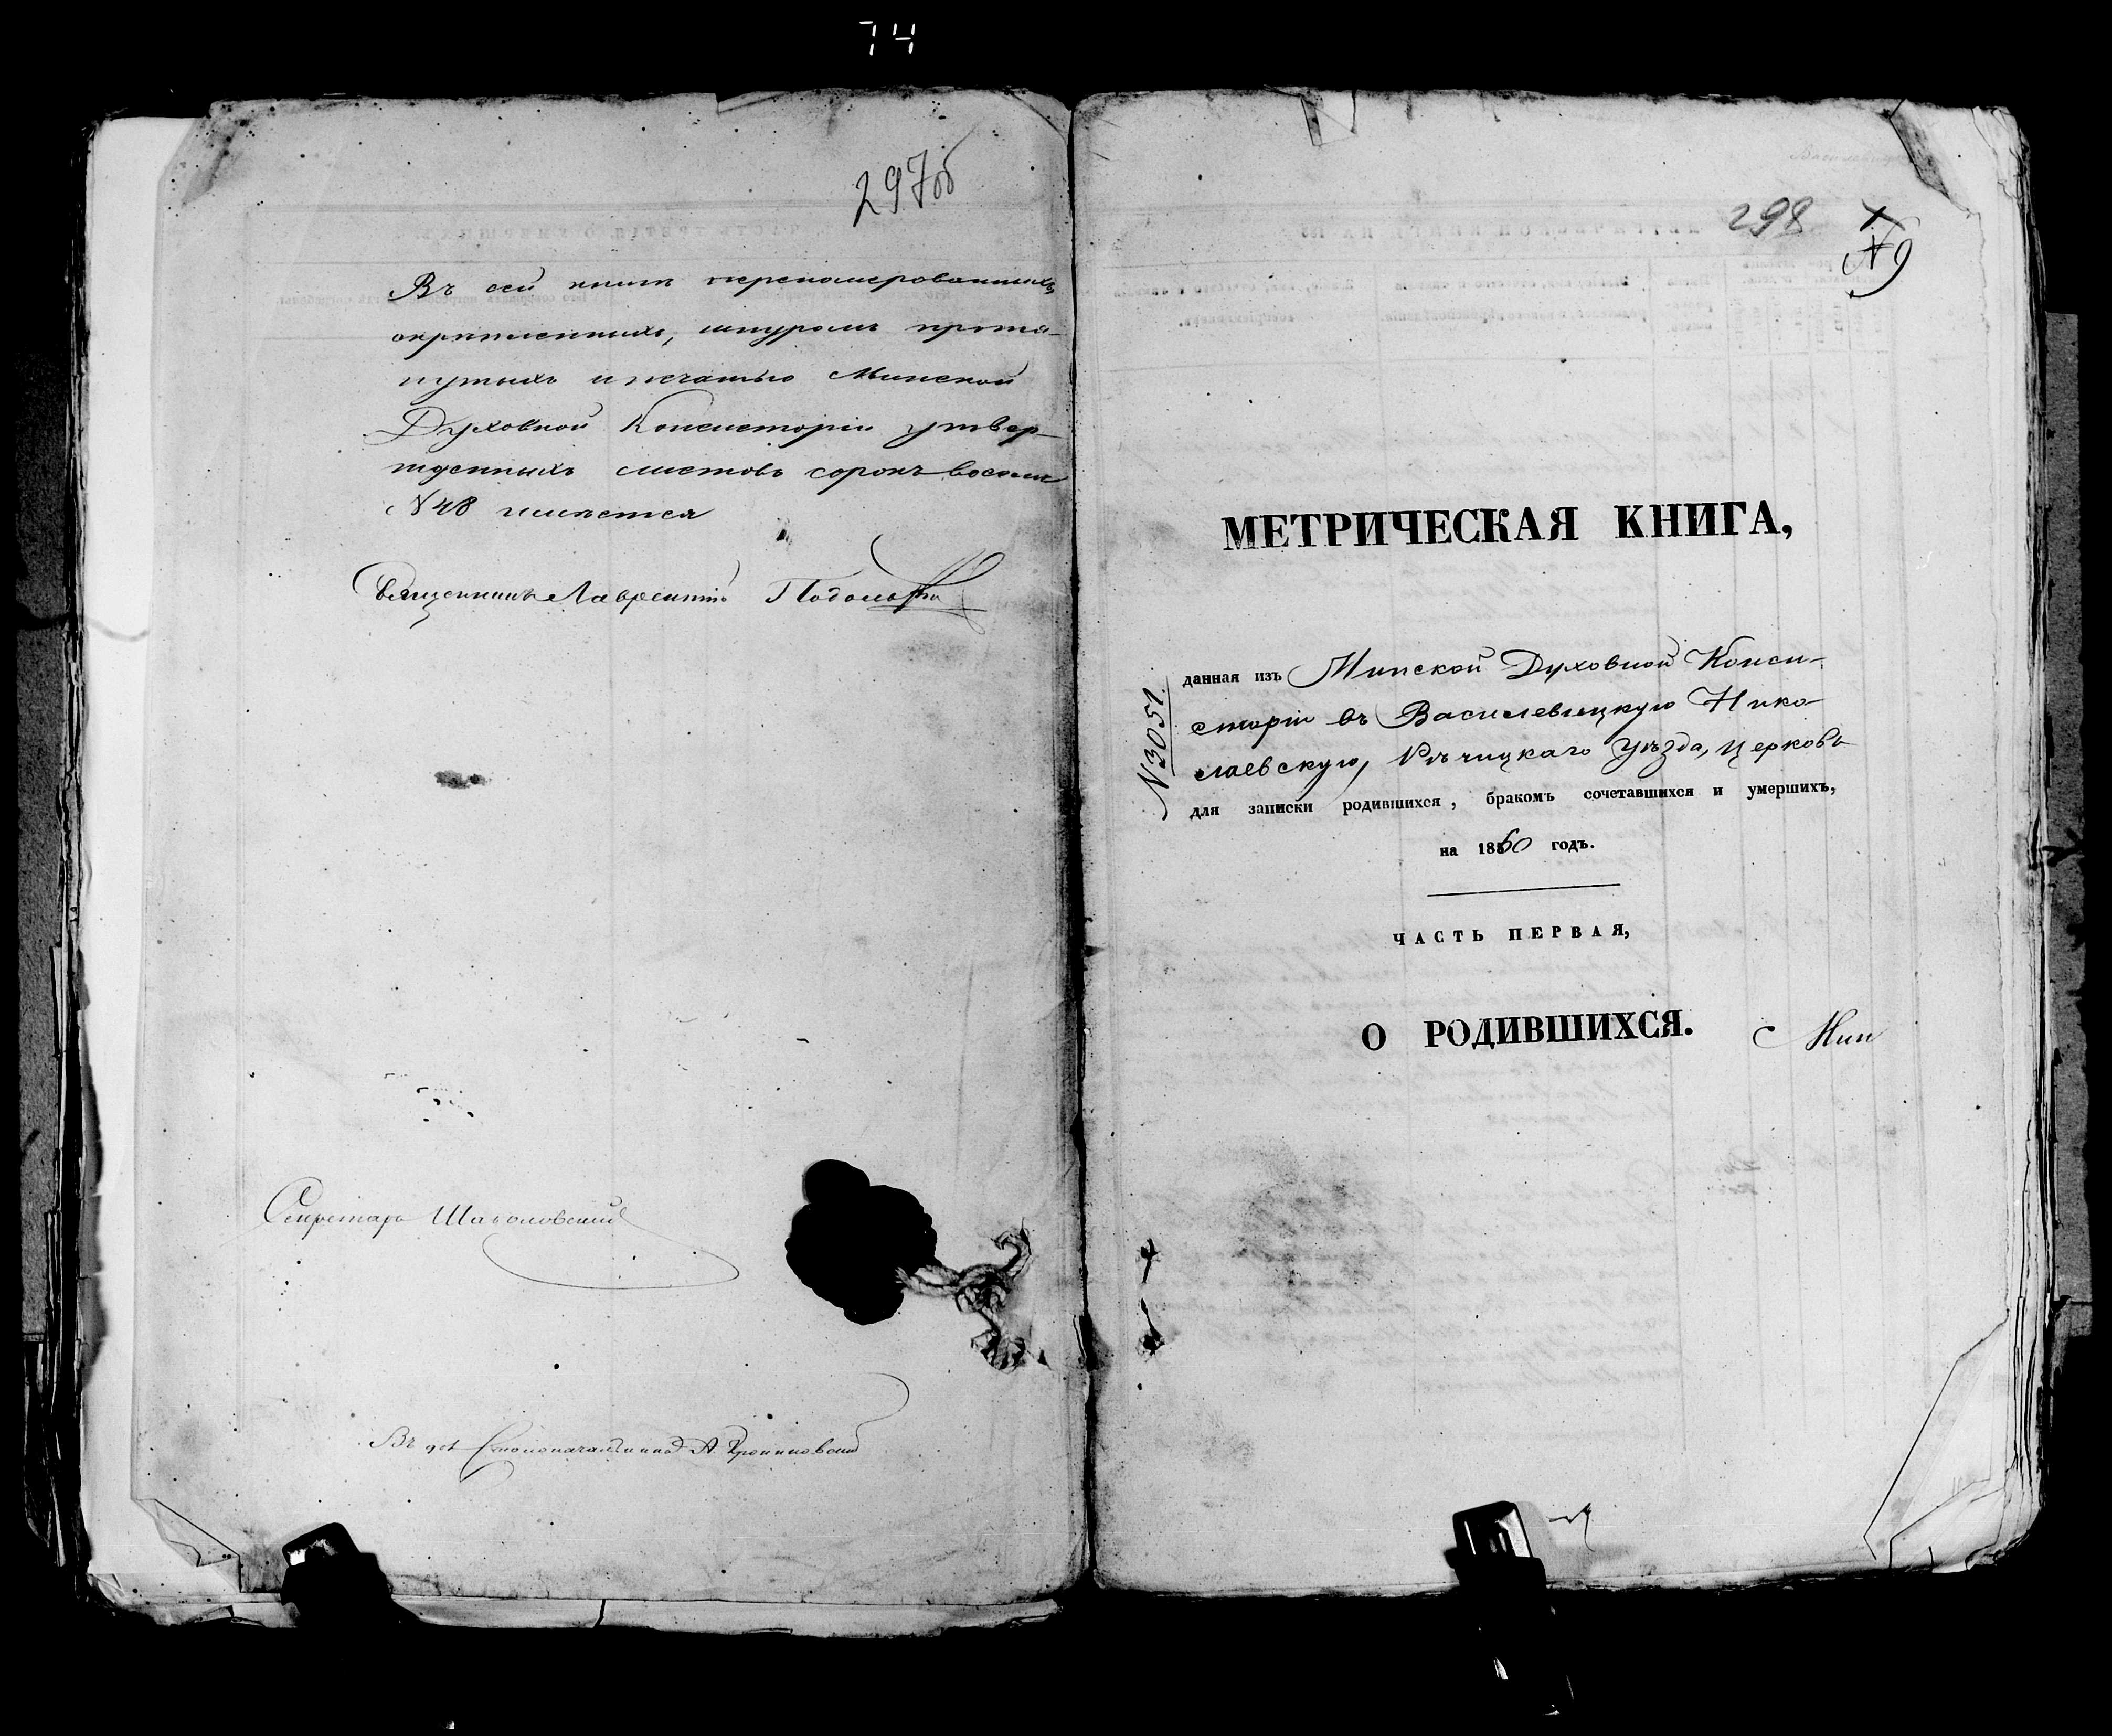 74
297об
Въ сей книгѣ перенумерованныхъ,
скрѣпленныхъ, шнуромъ протя-
нутыхъ и печатью Минской
Духовной Консисторіи утвер-
жденныхъ листовъ сорокъ восемь
№ 48 имѣется
Священникъ Лаврентій
Секретарь
Въ дол Столоначальника А.
298
№ 9
МЕТРИЧЕСКАЯ КНИГА,
№ 3051.
данная изъ Минской Духовной Конси-
сторіи въ Василевицкую Нико-
лаевскую, Рѣчицкаго уѣзда, церковь
для записки родившихся, бракомъ сочетавшихся и умершихъ,
на 1860 годъ.
ЧАСТЬ ПЕРВАЯ,
О РОДИВШИХСЯ.